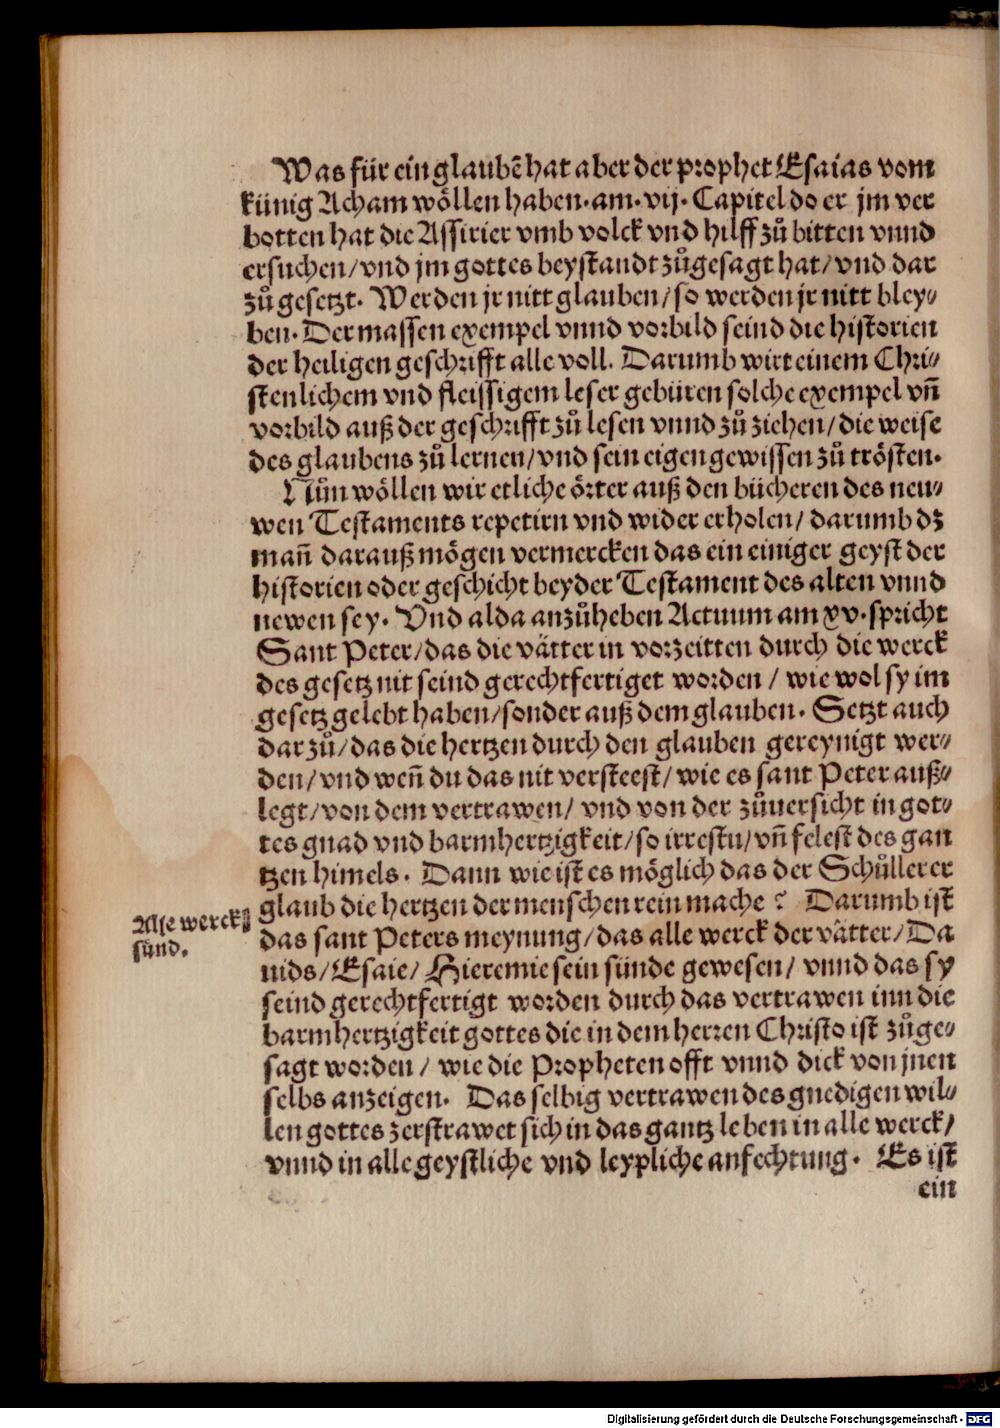 Was für ein glaubẽ hat aber der prophet Esaias vom
künig Acham wöllen haben. am. vij. Capitel do er jm ver
botten hat die Assirier vmb volck vnd hilff zů bitten vnnd
ersuchen/ vnd jm gottes beystandt zůgesagt hat/ vnd dar
zů gesetzt. Werden jr nitt glauben/ so werden jr nitt bley⸗
ben. Der massen exempel vnnd vorbild seind die historien
der heiligen geschrifft alle voll. Darumb wirt einem Chri⸗
stenlichem vnd fleissigem leser gebüren solche exempel vñ
vorbild auß der geschrifft zů lesen vnnd zů ziehen/ die weise
des glaubens zů lernen/ vnd sein eigen gewissen zů trösten.
Nůn wöllen wir etliche örter auß den bücheren des neu⸗
wen Testaments repetirn vnd wider erholen/ darumb dz
mañ darauß mögen vermercken das ein einiger geyst der
historien oder geschicht beyder Testament des alten vnnd
newen sey. Vnd alda anzůheben Actuum am xv. spricht
Sant Peter/ das die vätter in vorzeitten durch die werck
des gesetz nit seind gerechtfertiget worden / wie wol sy im
gesetz gelebt haben/ sonder auß dem glauben. Setzt auch
dar zů/ das die hertzen durch den glauben gereynigt wer⸗
den/ vnd weñ du das nit versteest/ wie es sant Peter auß⸗
legt/ von dem vertrawen/ vnd von der zůuersicht in got⸗
tes gnad vnd barmhertzigkeit/ so irrestu/ vñ felest des gan
tzen himels. Dann wie ist es möglich das der Schůllerer
glaub die hertzen der menschen rein mache? Darumb ist
Alle werck
sünd.
das sant Peters meynung/ das alle werck der vätter/ Da
uids/ Esaie/ Hieremie sein sünde gewesen/ vnnd das sy
seind gerechtfertigt worden durch das vertrawen inn die
barmhertzigkeit gottes die in dem herren Christo ist zůge⸗
sagt worden / wie die Propheten offt vnnd dick von jnen
selbs anzeigen. Das selbig vertrawen des gnedigen wil⸗
len gottes zerstrawet sich in das gantz leben in alle werck/
vnnd in alle geystliche vnd leypliche anfechtung. Es ist
ein
Digitalisierung gefördert durch die Deutsche Forschungsgemeinschaft - DFG